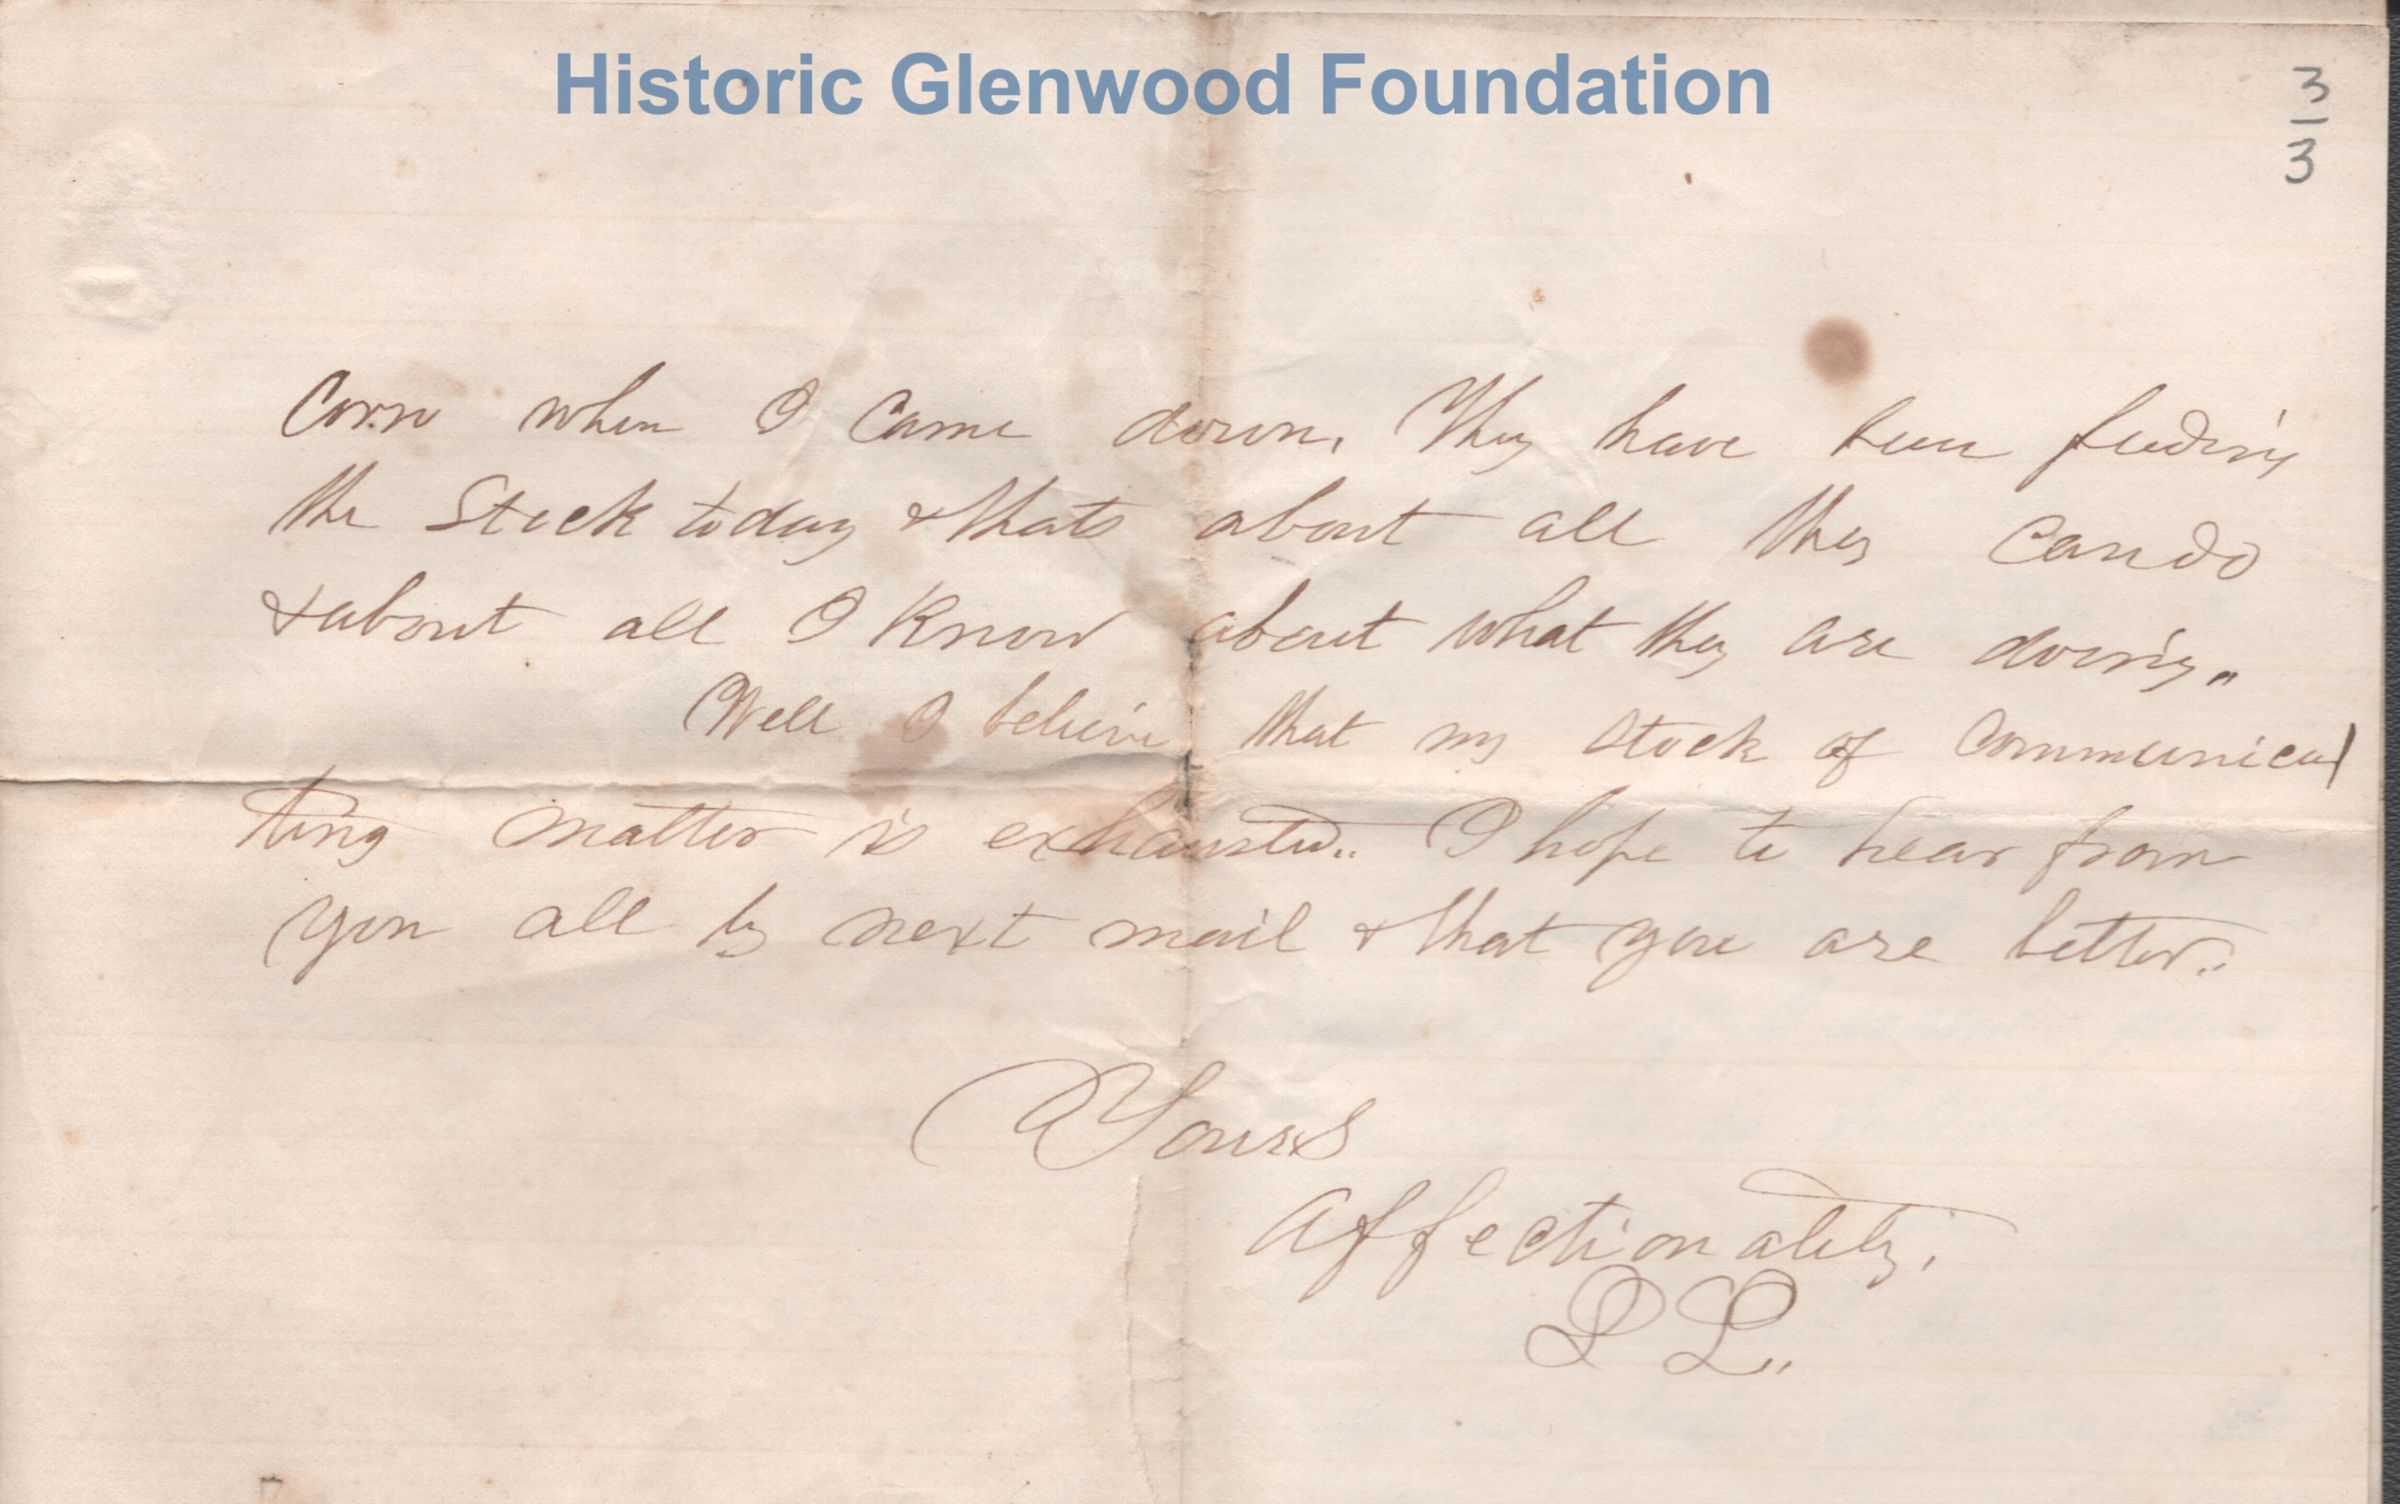 Historic Glenwood Foundation
3
3
Corn when I came down. They have been feeding
the Stock today & thats about all they can do
& about all I Know about what they are doing..
Well I believe that my stock of Communicat
ting matter is exhausted.. I hope to hear from
you all by next mail & that you are better..
Yours
Affectionately,
L L..